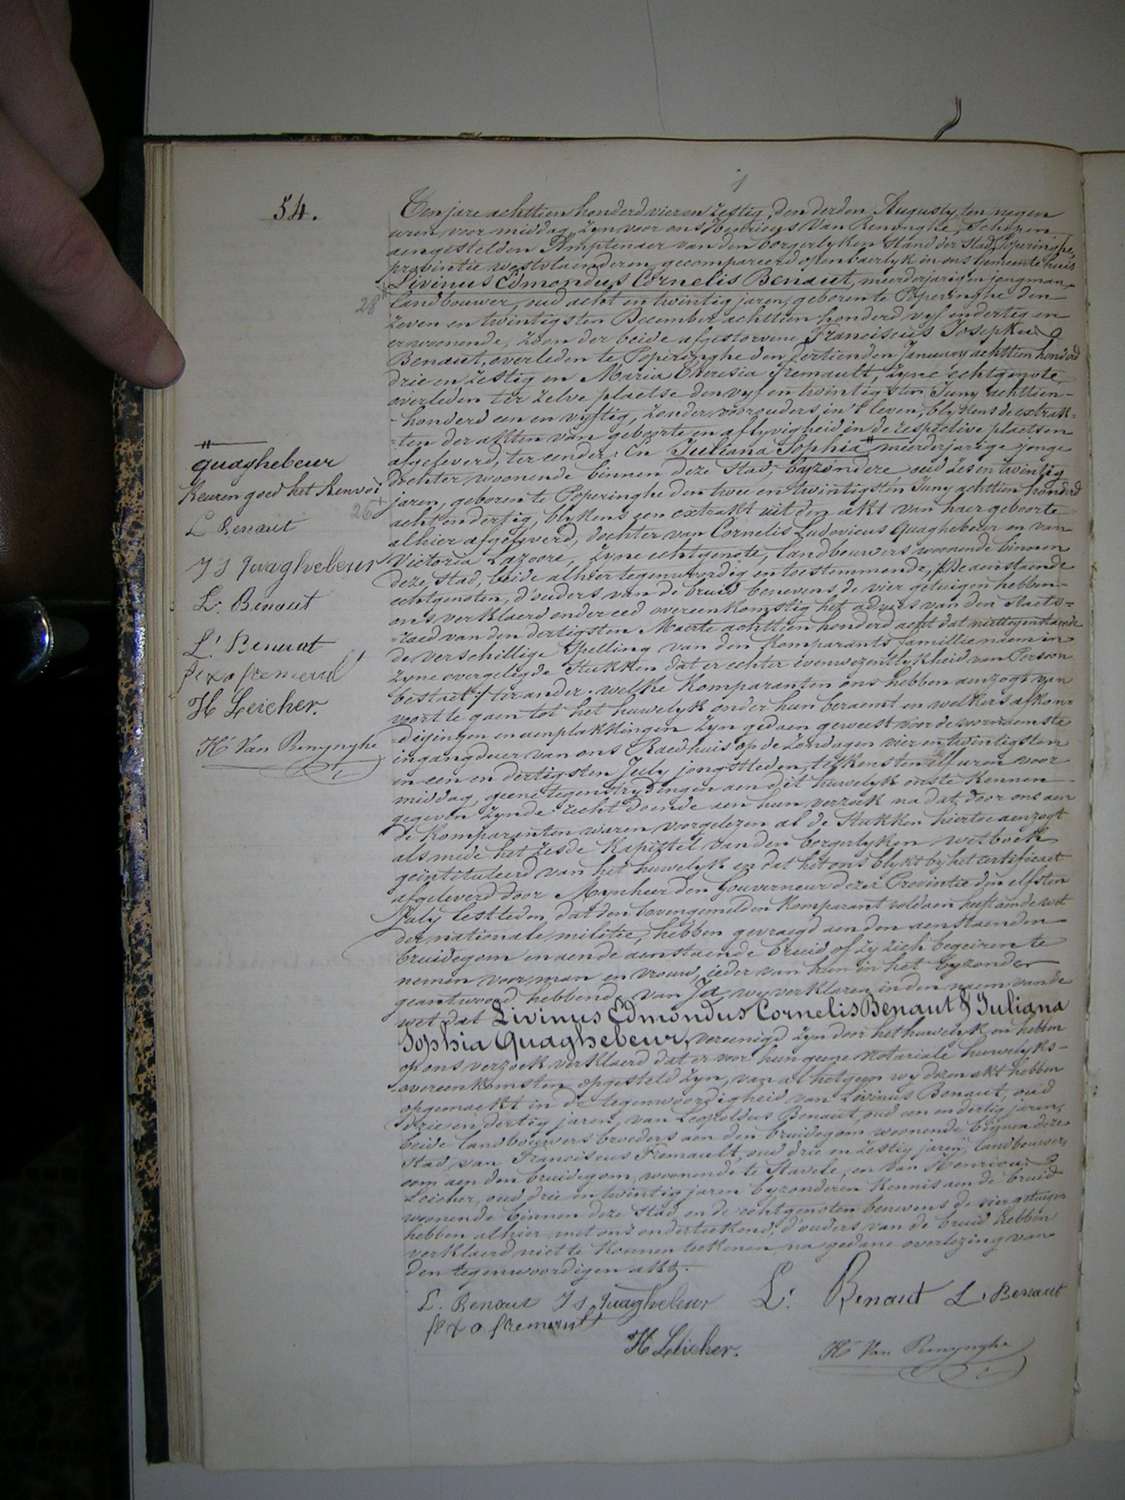 54.
Ten jare achttien honderd vier en zestig, den derden Augusty ten negen
uren voor middag, zyn voor ons Henricus Van Renynghe, Schepen
aengestelden Amptenaer van den borgerlyken stand der stad Poperinghe,
provintie westvlaenderen, gecompareerd openbaerlyk in ons Gemeente huis
Livinus Edmondus Cornelis Benaut, meerderjarigen jongman
28
landbouwer, oud acht en twintig jaren, geboren te Poperinghe den
zeven en twintigsten December achttien honderd vyf en dertig en
er woonende, zoon der beide afgestorvene Franciscus Josephus
Benaut, overleden te Poperinghe den veertienden January achttien honderd
drie en zestig en Maria Theresia Fremault, zyne echtgenote
overleden ter zelve plaetse den vyf en twintigsten Juny achttien
honderd een en vyftig, zonder voorouders in 't leven, blykens de extrak-
ten der akten van geboorte en aflyvigheid in de respective plaetsen
afgeleverd, ter eender; En Juliana Sophia " meerderjarige jonge
dochter woonende binnen deze Stad, byzondere oud zes en twintig
26
jaren, geboren te Poperinghe den twee en twintigsten Juny achttien honderd
acht en dertig, blykens een extrakt uit een akt van haer geboorte
alhier afgeleverd, dochter van Cornelis Ludovicus Quaghebeur en van
Victoria Lazoore, zyne echtgenote, landbouwers woonende binnen
deze Stad, beide alhier tegenwoordig en toestemmende, De aenstaende
echtgenoten, d'ouders van de bruid benevens de vier getuigen hebben
ons verklaerd onder eed overeenkomstig het advies van den Staets-
raed van den dertigsten Maerte achttien honderd acht dat niettegenstaende
de verschillige spelling van den komparants familie naem in
zyne overgelegde Stukken dat er echter evenwezentlykheid van Persoon
bestaet, ter ander, welke Komparanten ons hebben aenzogt van
voort te gaen tot het huwelyk onder hun beraemt en welkers afkon-
digingen en aenplakkingen zyn gedaen geweest voor de voornaemste
ingangdeur van ons Raedhuis op de zondagen vier en twintigsten
en een en dertigsten July jongstleden, telkersten elf uren voor
middag, geene tegenstrydingen aen dit huwelyk ons te kennen
gegeven zynde recht doende aen hun verzoek na dat, door ons aen
de Komparanten waren voorgelezen al de Stukken hiertoe aenzogt
als mede het zesde Kapittel van den borgerlyken wetboek
geintituleerd van het huwelyk en dat het ons blykt by het certificaet
afgeleverd door Mynheer den Gouverneur dezer Provintie den elfsten
July lestleden, dat den bovengemelden Komparant voldaen heeft aen de wet
der nationale militie, hebben gevraegd aen den aenstaenden
bruidegom en aen de aenstaende bruid of zy zich begeiren te
nemen voor man en vrouw, ieder van hun in het byzonder
geantwoord hebbende van Ja, wy verklaren in den naem van de
wet dat Livinus Edmondus Cornelis Benaut & Juliana
Sophia Quaghebeur, vereenigd zyn door het huwelyk en hebben
op ons verzoek verklaerd dat er voor hun geene Notariale huwelyks-
overeenkomsten opgesteld zyn, van al hetgeen wy dezen akt hebben
opgemaekt in de tegenwoordigheid van Livinus Benaut, oud
drie en dertig jaren, van Leopoldus Benaut, oud een en dertig jaren,
beide landbouwers broeders aen den bruidegom woonende binnen deze
Stad, van Franciscus Fremault, oud drie en zestig jaren, landbouwer
oom aen den bruidegom, woonende te Stavele, en van Henricus
Leicher, oud drie en twintig jaren byzonderen Kennis aen de bruid
woonende binnen deze Stad en de echtgenoten benevens de vier getuigen
hebben alhier met ons onderteekend, d'ouders van de bruid hebben
verklaerd niet te konnen teekenen na gedane overlezing van
den tegenwoordigen akt.
L. Benaut J S Quaghebeur L. Benaut L. Benaut
fr x o fremault
H Leicher. H Van Renynghe
" quaghebeur
keuren goed het Renvoi
L Benaut
J S Quaghebeur
L. Benaut
L. Benaut
fr x o fremault
H Leicher.
H Van Renynghe